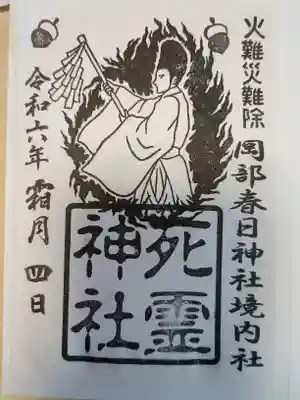 火難災難除
岡部春日神社境内社
死霊
神社
令和六年霜月四日